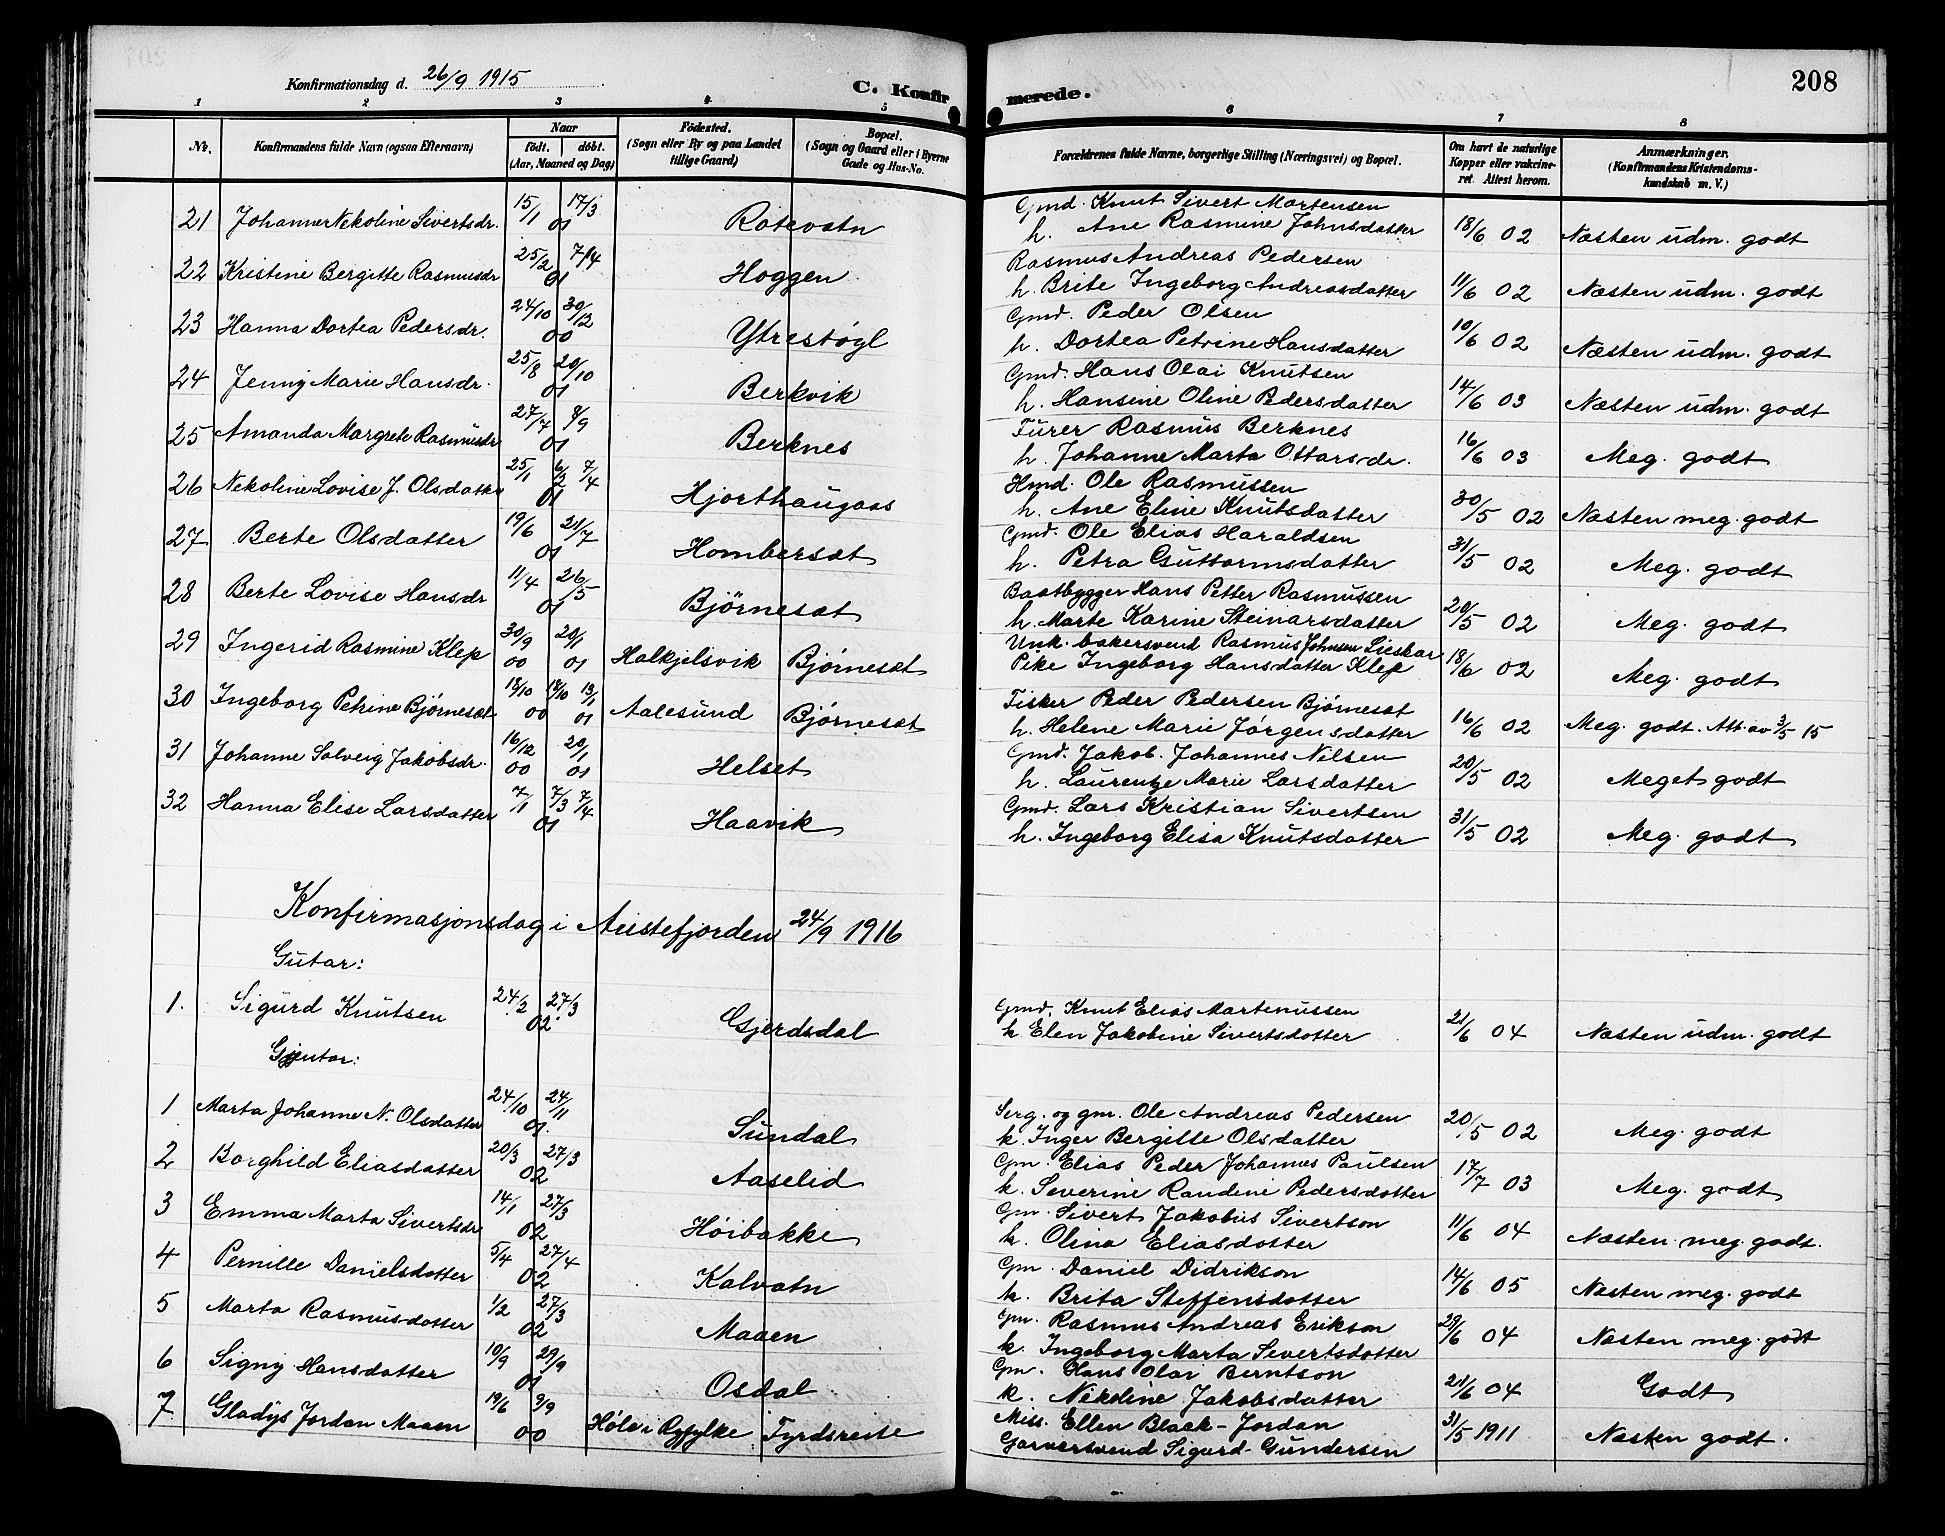 208
Konfirmationsdag d. 26/9 1915
C. Konfirmerede.
1 2 3 4 5 6 7 8
Nr. Konfirmandens fulde Navn (ogsaa Efternavn) Naar født. døbt. (Aar, Maaned og Dag) Födested. (Sogn eller By og paa Landet tillige Gaard) Bopæl. (Sogn og Gaard eller i Byerne Gade og Hus-No. Forældrenes fulde Navne, borgerlige Stilling (Næringsvei) og Bopæl. Om havt de naturlige Kopper eller vakcineret. Attest herom. Anmærkninger. (Konfirmandens Kristendomskundskab m. V.)
21 Johanne Nekoline Sivertsdr. 15/1 17/3 01 Rotevatn Gmd. Knut Sivert Martensen
h. Ane Rasmine Johnsdatter 18/6 02 Næsten udm. godt
22 Kristine Bergitte Rasmusdr 25/2 7/4 01 Hoggen Rasmus Andreas Pedersen
h. Brite Ingeborg Andreasdatter 11/6 02 Næsten udm. godt
23 Hanna Dortea Pedersdr. 24/10 30/12 00 Ytrestøyl Gmd. Peder Olsen
h. Dortea Petrine Hansdatter 10/6 02 Næsten udm. godt
24 Jenny Marie Hansdr. 25/8 20/10 01 Berkvik Gmd. Hans Olai Knutsen
h. Hansine Oline Pedersdatter 14/6 03 Næsten udm. godt
25 Amanda Margrete Rasmusdr 27/7 8/9 01 Berknes Furer Rasmus Berknes
h. Johanne Marta Ottarsdr. 16/6 03 Meg. godt
26 Nekoline Lovise J. Olsdatter 25/1 6/2 7/4 01 Hjorthaugaas Hmd. Ole Rasmussen
h. Ane Eline Knutsdatter 30/5 02 Næsten meg. godt
27 Berte Olsdatter 19/6 21/7 01 Hombersæt Gmd. Ole Elias Haraldsen
h. Petra Guttormsdatter 31/5 02 Meg. godt
28 Berte Lovise Hansdr 11/4 26/5 01 Bjørnesæt Baatbygger Hans Petter Rasmussen
h. Marte Karine Steinarsdatter 20/5 02 Meg. godt
29 Ingerid Rasmine Klep 30/9 00 20/1 01 Halkjelsvik Bjørnesæt Unk. bakersvend Rasmus Johnsen Lieskar
Pike Ingeborg Hansdatter Klep 18/6 02 Meg. godt
30 Ingeborg Petrine Bjørnesæt 18/10 18/10 00 13/1 01 Aalesund Bjørnesæt Fisker Peder Pedersen Bjørnesæt
h. Helene Marie Jørgensdatter 16/6 02 Meg. godt. Att. av 3/5 15
31 Johanne Solveig Jakobsdr. 16/12 00 20/1 01 Helset Gmd. Jakob Johannes Nilsen
h. Laurentze Marie Larsdatter 20/5 02 Meget godt
32 Hanna Elise Larsdatter 7/1 7/3 7/4 01 Haavik Gmd. Lars Kristian Sivertsen
h. Ingeborg Elisa Knutsdatter 31/5 02 Meg. godt
Konfirmasjonsdag i Austefjorden 24/9 1916
Gutar:
1. Sigurd Knutsen 24/2 27/3 02 Gjerdsdal Gmd. Knut Elias Martenussen
k Elen Jakobine Sivertsdotter 21/6 04 Næsten udm. godt
Gjentor:
1 Marta Johanne N. Olsdatter 24/10 24/11 01 Sundal Serg. og gm. Ole Andreas Pedersen
k. Inger Bergitte Olsdatter 20/5 02 Meg. godt
2 Borghild Eliasdatter 20/3 27/3 02 Aaselid Gm. Elias Peder Johannes Paulsen
k. Severine Randine Pedersdotter 17/7 03 Meg. godt
3 Emma Marta Sivertsdr 14/1 27/3 02 Høibakke Gm. Sivert Jakobus Sivertson
k. Olina Eliasdotter 11/6 04 Næsten meg. godt.
4 Pernille Danielsdotter 5/4 27/4 02 Kalvatn Gm. Daniel Didrikson
k. Brita Steffensdotter 14/6 05 Næsten meg. godt
5 Marta Rasmusdotter 1/2 27/3 02 Maaen Gm. Rasmus Andreas Erikson
k. Ingeborg Marta Sivertsdotter 29/6 04 Næsten meg. godt
6 Signy Hansdatter 10/9 29/9 01 Osdal Gm. Hans Olai Berntson
k. Nikoline Jakobsdatter 21/6 04 Godt
7 Gladys Jordan Maaen 19/6 9/9 00 Høle i Ryfylke Fyrdsreite Miss. Ellen Black-Jordan
Garversvend Sigurd Gundersen 31/5 1911 Næsten godt.